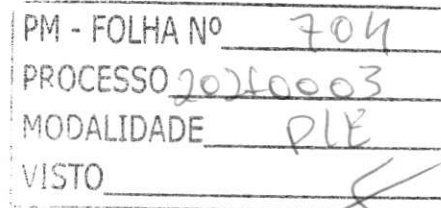 PM - FOLHA Nº 704
PROCESSO 20210003
MODALIDADE PLE
VISTO